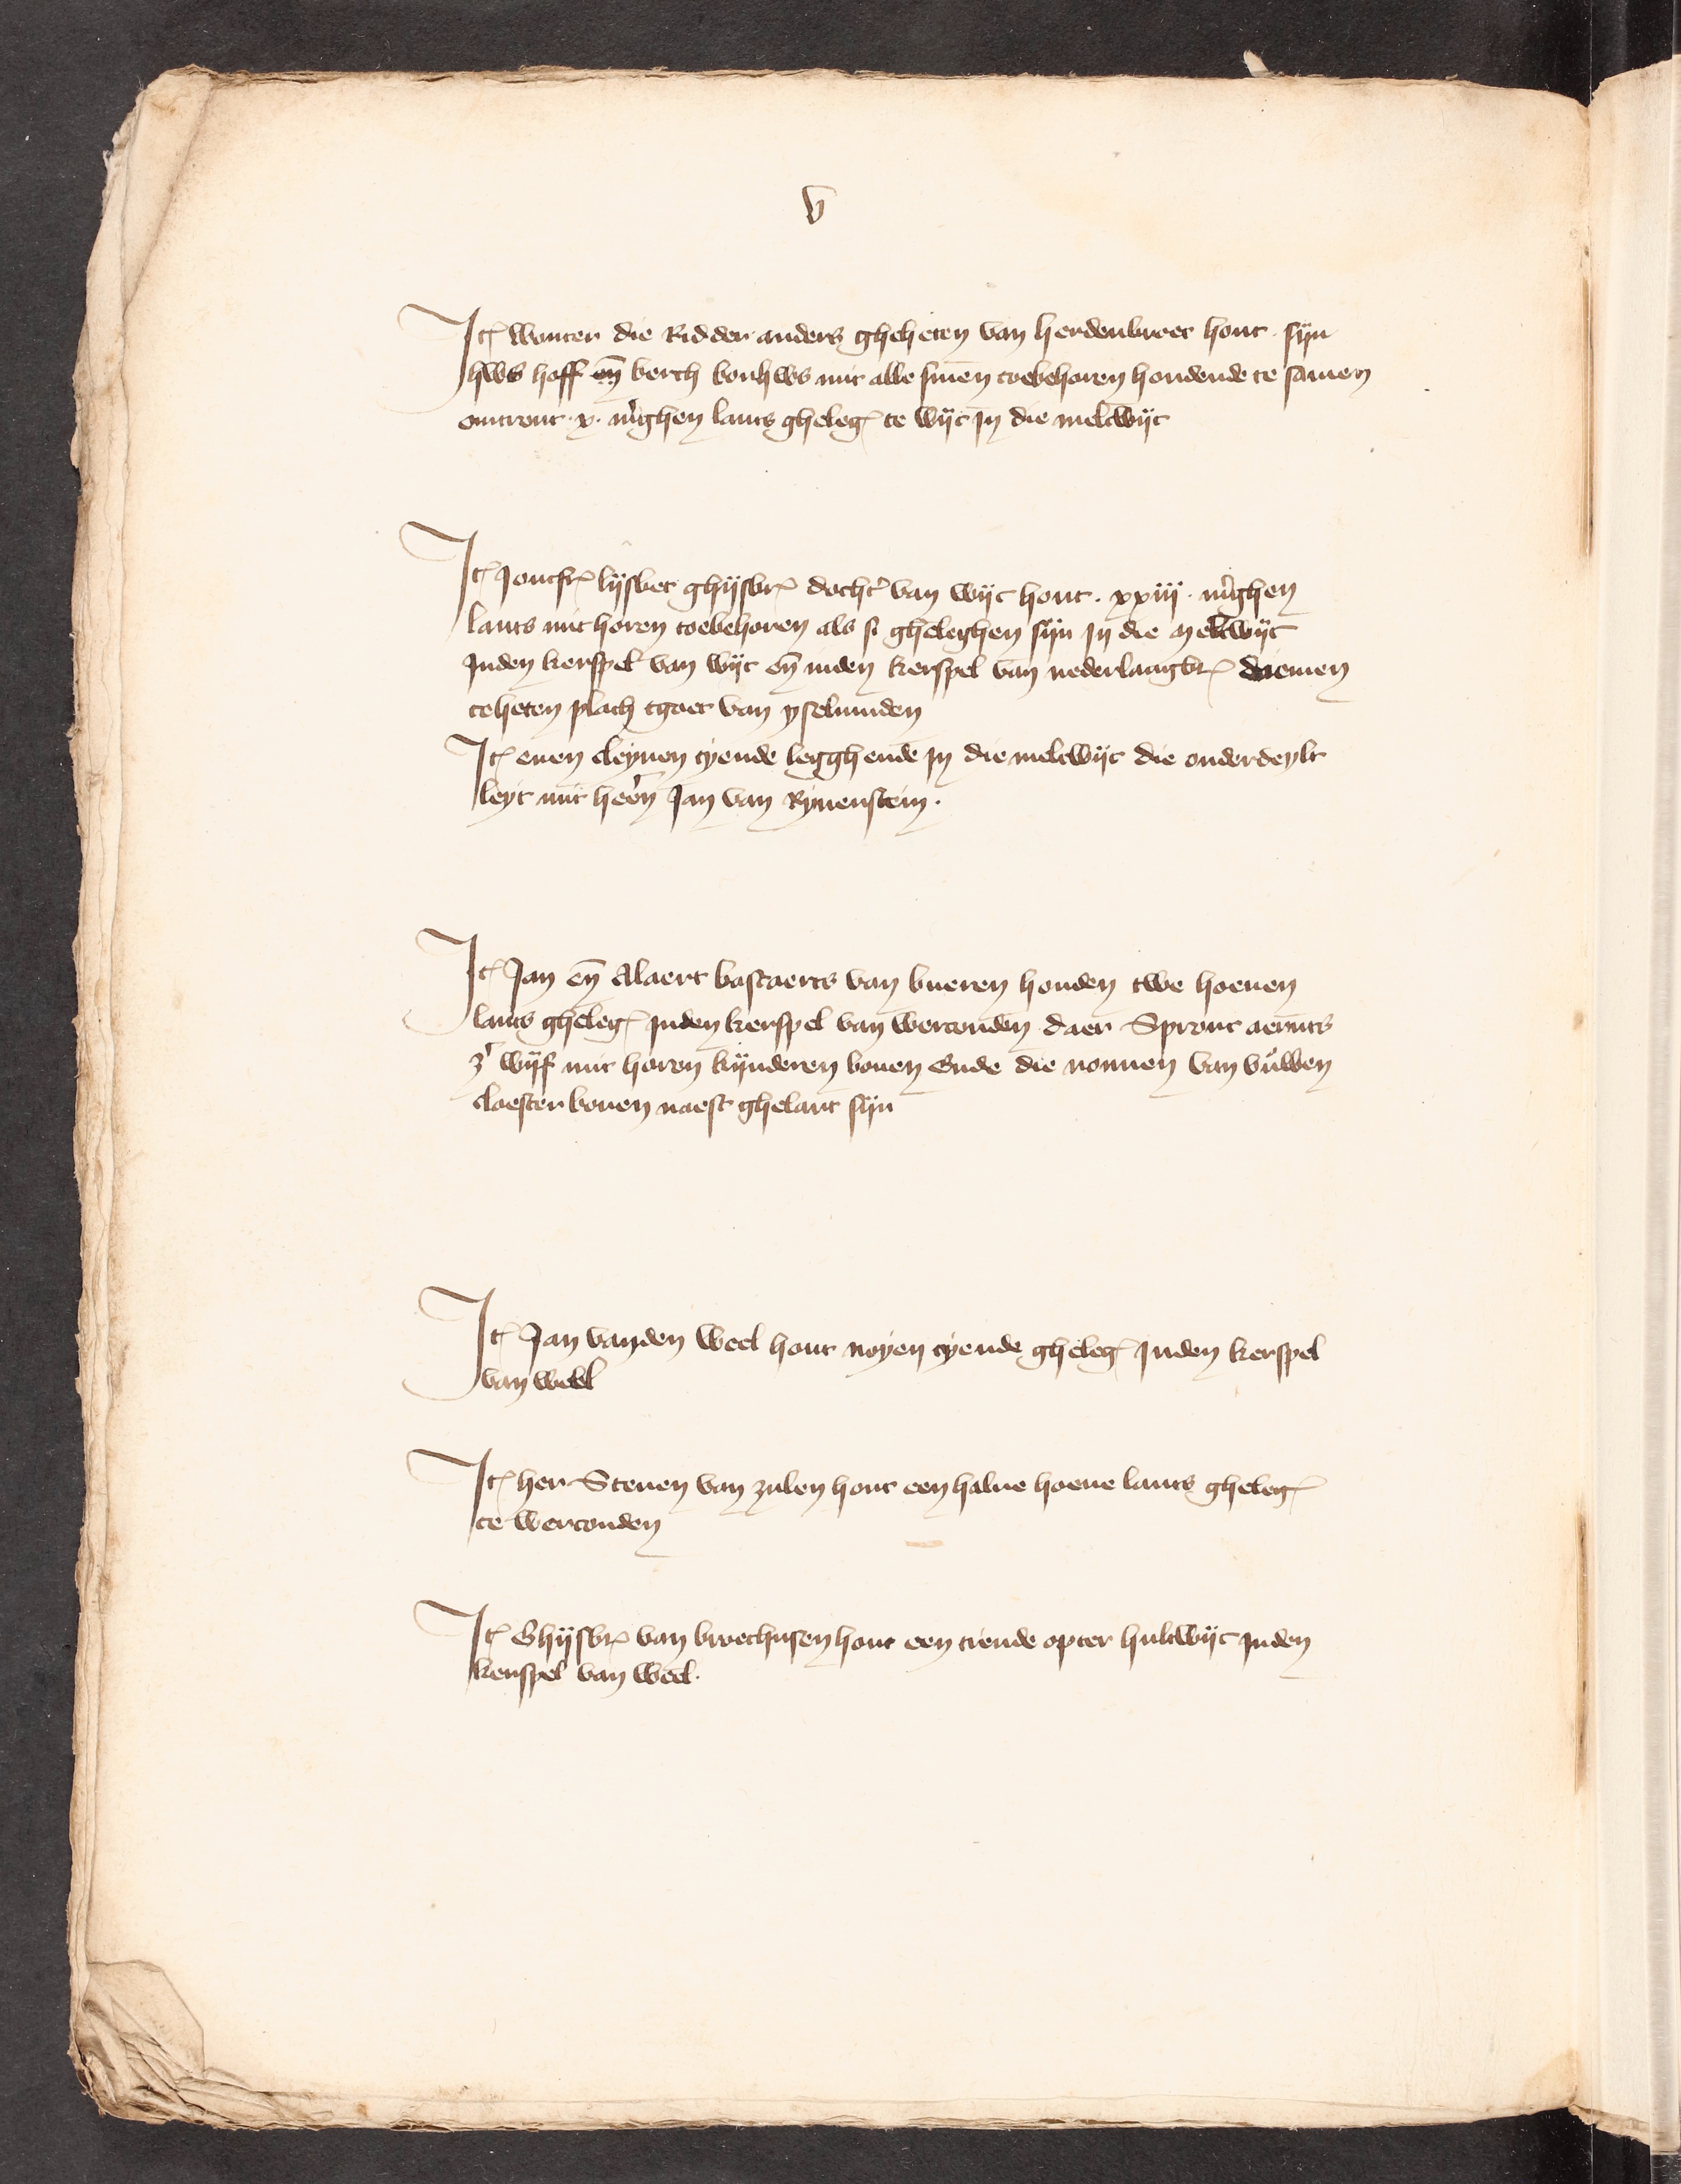 v
Itẽ wouter die Ridder anders gheheten van herdenbroec hout sijn
hws hoff eñ berch bouhws mit alle sinen toebehoren houdende te samen
omtrent · x · mghen lants gheleg te wijc in die meltwijc
Itẽ Joncfr lijsbet ghijsbr docht van wijc hout · xxiij · mghen
lants mit horen toebehoren als si gheleghen sijn in die meltwijc
Inden kerspel van wijc eñ inden kerspel van nederlangbr diemen
teheten plach tgoet van yselmuden
Itẽ enen cleynen tyende legghende in die meltwijc die onderdeylt
leyt mit heren Jan van Rynenstein ·
Itẽ Jan eñ Alaert bastaerts van bueren houden twe hoeuen
lants gheleg inden kerspel van werconden daer Spront aernts
z wijf mit horen kijnderen bouen Ende die nonnen van vuwen
cloester bouen naest ghelant sijn
Itẽ Jan vanden Weel hout noyen tyende gheleg Inden kerspel
van weel
Itẽ her Steuen van zulen hout een halue hoeue lants gheleg
te werconden
Itẽ Ghijsbr van broechusen hout een tiende opter hultwijc inden
kerspel van weel ·